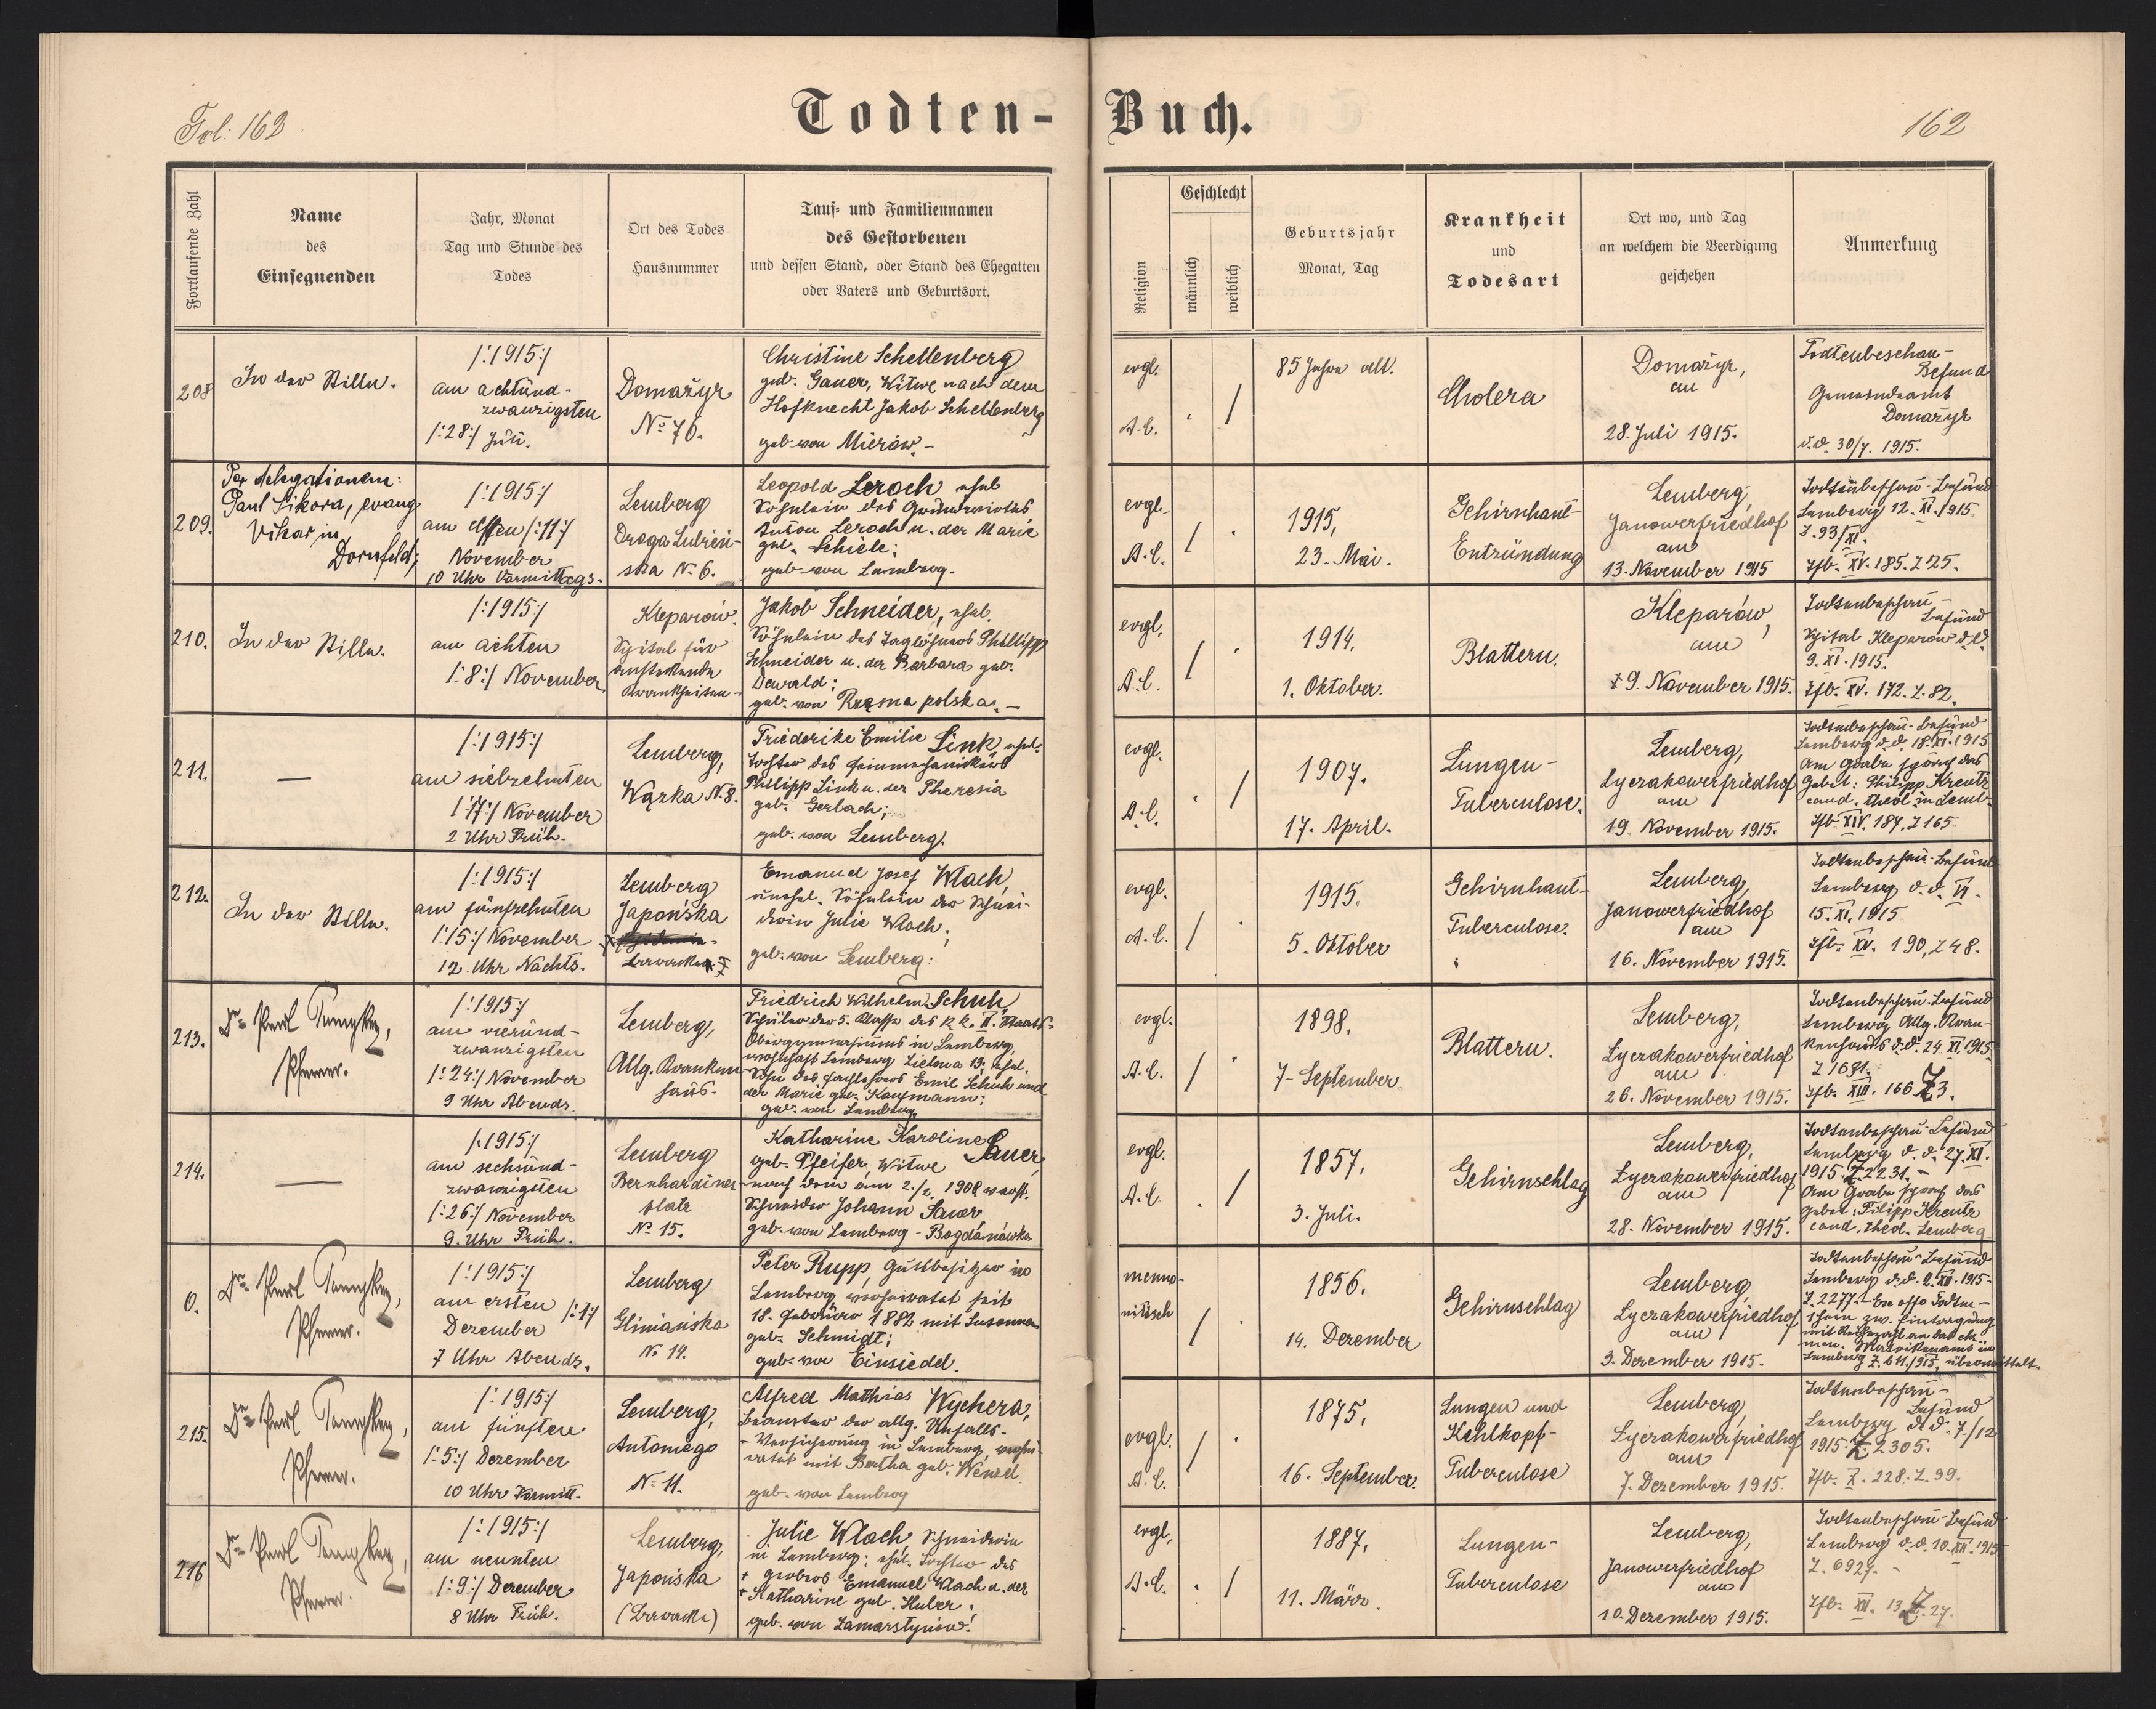 Fol: 162
Todten-Buch.
162
Fortlaufende Zahl
Name
des
Einsegnenden
Jahr, Monat
Tag und Stunde des
Todes
Ort des Todes
Hausnummer
Tauf- und Familiennamen
des Gestorbenen
und dessen Stand, oder Stand des Ehegatten
oder Vaters und Geburtsort.
Religion
Geschlecht
männlich
weiblich
Geburtsjahr
Monat, Tag
Krankheit
und
Todesart
Ort wo, und Tag
an welchem die Beerdigung
geschehen
Anmerkung
208
In der Stille.
/:1915:/
am achtund-
zwanzigsten
/:28:/ Juli.
Domażyr
No 70.
Christine Schellenberg
geb. Gauer, Witwe nach dem
Hofknecht Jakob Schellenberg
geb. von Mierów.-
evgl.
A.C.
. /
85 Jahre alt.
Cholera
Domażyr,
am
28. Juli 1915.
Todtenbeschau-
Befund
Gemeindeamt
Domażyr
d.d. 30/7. 1915.
209.
Per delegationem:
Paul Sikora, evang.
Vikar in
Dornfeld;
/:1915:/
am elften /:11:/
November
10 Uhr Vormittags.
Lemberg
Droga Lubień-
ska No 6.
Leopold Leroch ehel
Söhnlein des
Anton Leroch u. der Marie
geb. Schiele;
geb. von Lemberg.
evgl.
A.C.
/ .
1915,
23. Mai.
Gehirnhaut-
Entzündung
Lemberg,
Janowerfriedhof
am
13. November 1915
Todtenbeschau-Befund
Lemberg 12. XI. 1915
Z. 93/XI.
Tfb. XV. 185. Z 25.
210.
In der Stille.
/:1915:/
am achten
/:8:/ November
Kleparów.
Spital für
ansteckende
Krankheiten-
Jakob Schneider, ehel.
Söhnlein des Taglöhners Phillipp
Schneider u. der Barbara geb.
Dewald;
geb. von Rzęsna polska.-
evgl.
A.C.
/ .
1914.
1. Oktober.
Blattern.
Kleparów,
am
9. November 1915.
Todtenbeschau-
Befund
Spital Kleparów d.d.
9. XI. 1915.
Tfb. XV. 172. Z. 82.
211.
—
/:1915:/
am siebzehnten
/:17:/ November
2 Uhr Früh.
Lemberg,
Wązka N. 8.
Friederike Emilie Link, ehel.
Tochter des Feinmechanikers
Philipp Link u. der Theresia
geb. Gerlach;
geb. von Lemberg.
evgl.
A.C.
. /
1907.
17. April.
Lungen-
Tuberculose.
Lemberg,
Lyczakowerfriedhof
am
19. November 1915.
Todtenbeschau-Befund
Lemberg d.d. 18. XI. 1915
Am Grabe sprach das
Gebet: Philipp Kreutz
cand. theol. in Lemb-
Tfb. XIV. 187. Z 165
212.
In der Stille.
/:1915:/
am fünfzehnten
/:15:/ November
12 Uhr Nachts.
Lemberg
Japońska
Emanuel Josef Wlach,
unehel. Söhnlein der Schnei-
derin Julie Wlach;
geb. von Lemberg:
evgl.
A.C.
/ .
1915.
5. Oktober
Gehirnhaut-
Tuberculose.
Lemberg,
Janowerfriedhof
am
16. November 1915.
Todtenbeschau-Befund
Lemberg d.d. VI.
15. XI. 1915
Tfb. XV. 190, Z 48.
213.
Pfarrer.
/:1915:/
am vierund-
zwanzigsten
/:24:/ November
9 Uhr Abends.
Lemberg,
Allg. Kranken-
haus.
Friedrich Wilhelm Schuh,
Schüler der 5. Classe des k.k. II. Staats-
Obergymnasiums in Lemberg
wohnhaft Lemberg Zielona 13; ehel.
Sohn des Fachlehrers Emil Schuh und
der Marie geb. Kaufmann;
geb. von Lemberg
evgl.
A.C.
/ .
1898.
7. September
Blattern.
Lemberg,
Lyczakowerfriedhof
am
26. November 1915.
Todtenbeschau-Befund
Lemberg Allg. Kran-
kenhaus d.d. 24. XI. 1915
Z 1691.
Tfb. XIII. 166 Z 3.
214.
—
/:1915:/
am sechsund-
zwanzigsten
/:26:/ November
9. Uhr Früh.
Lemberg
Bernhardiner-
platz
No 15.
Katharine Karoline Sauer,
geb. Pfeifer, Witwe
nach dem am 2./2. 1908 verst.
Schneider Johann Sauer
geb. von Lemberg-Bogdanówka
evgl.
A.C.
. /
1857,
3. Juli.
Gehirnschlag
Lemberg,
Lyczakowerfriedhof
am
28. November 1915.
Todtenbeschau-Befund
Lemberg d.d. 27. XI.
1915 Z 2231.-
Am Grabe sprach das
Gebet: Filipp Kreutz
cand. theol. Lemberg
0.
Pfarrer.
/:1915:/
am ersten /:1:/
Dezember
7 Uhr Abends.
Lemberg
Gliniańska
No 14.
Peter Rupp, Gutsbesitzer in
Lemberg, verheiratet seit
18. Februar 1882 mit Susanna
geb. Schmidt;
geb. von Einsiedel.
menno-
nitisch
/ .
1856.
14. Dezember
Gehirnschlag
Lemberg,
Lyczakowerfriedhof
am
3. Dezember 1915.
Todtenbeschau-Befund
Lemberg d.d. 2. XII. 1915.
Z. 2277.- Ex offo Todten-
schein zw. Eintragung
men. Matrikenamt in
Lemberg Z. 641./1915, übermittelt.
215.
Pfarrer.
/:1915:/
am fünften
/:5:/ Dezember
10 Uhr Vormitt.
Lemberg,
Antoniego
No 11.
Alfred Matthias Wychera,
Beamter der allg. Unfalls-
-Versicherung in Lemberg, verhei-
ratet mit Bertha geb. Wenzel
geb. von Lemberg
evgl.
A.C.
/ .
1875,
16. September.
Lungen und
Kehlkopf-
Tuberculose
Lemberg,
Lyczakowerfriedhof
am
7. Dezember 1915.
Todtenbeschau-
Befund
Lemberg d.d. 7./12
1915. Z. 2305.
Tfb. X. 228. Z. 99.
216
Pfarrer.
/:1915:/
am neunten
/:9:/ Dezember
8 Uhr Früh.
Lemberg,
Japońska
Julie Wlach, Schneiderin
in Lemberg; ehel. Tochter des
+ Gerbers Emanuel Wlach u. der
+ Katharine geb. Huber;
geb. von Zamarstynów!
evgl.
A.C.
. /
1887.
11. März.
Lungen-
Tuberculose
Lemberg,
Janowerfriedhof
am
10. Dezember 1915.
Todtenbeschau-Befund
Lemberg d.d. 10. XII. 1915
Z. 6927.-
Tfb. XII. 13 Z. 27.